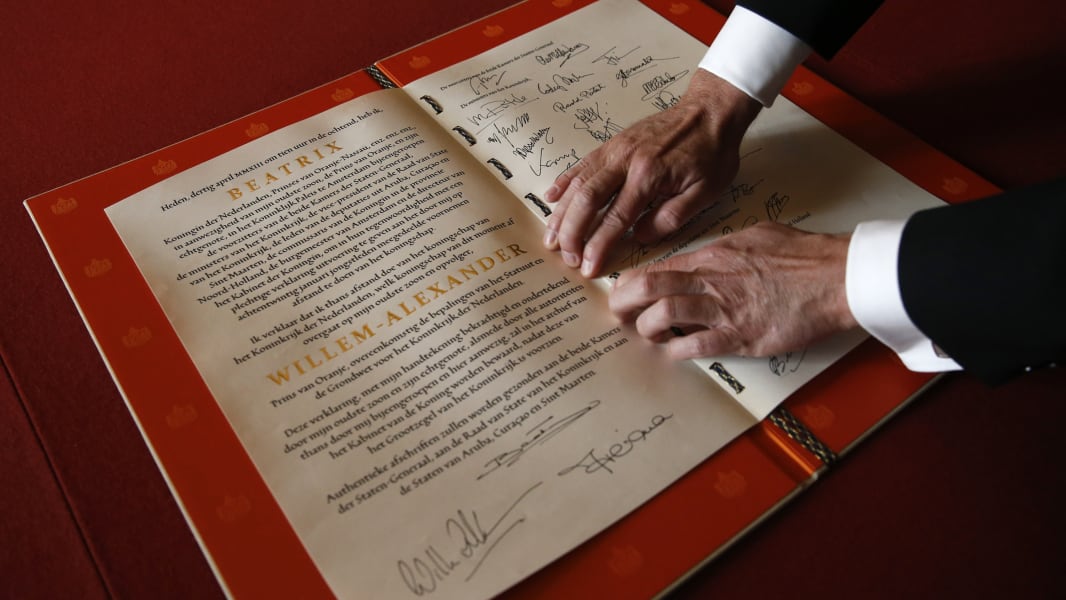 Heden, dertig april MMXIII om tien uur in de ochtend, heb ik,
BEATRIX
Koningin der Nederlanden, Prinses van Oranje-Nassau, enz. enz. enz.,
in aanwezigheid van mijn oudste zoon, de Prins van Oranje, en zijn
echtgenote, in het Koninklijk Paleis te Amsterdam bijeengeroepen
de voorzitters van de beide Kamers der Staten-Generaal,
de ministers van het Koninkrijk, de vice-president van de Raad van State
van het Koninkrijk, de leden van de deputaties uit Aruba, Curaçao en
Sint Maarten, de commissaris der Koningin in de provincie
Noord-Holland, de burgemeester van Amsterdam en de directeur van
het Kabinet der Koningin, om in hun tegenwoordigheid met een
plechtige verklaring uitvoering te geven aan het door mij op
achtentwintig januari jongstleden meegedeelde voornemen
afstand te doen van het koningschap.
Ik verklaar dat ik thans afstand doe van het koningschap van
het Koninkrijk der Nederlanden, welk koningschap van dit moment af
overgaat op mijn oudste zoon en opvolger,
WILLEM-ALEXANDER
Prins van Oranje, overeenkomstig de bepalingen van het Statuut en
de Grondwet voor het Koninkrijk der Nederlanden.
Deze verklaring, met mijn handtekening bekrachtigd en ondertekend
door mijn oudste zoon en zijn echtgenote, alsmede door alle autoriteiten
thans door mij bijeengeroepen en hier aanwezig, zal in het archief van
het Kabinet van de Koning worden bewaard, nadat deze van
het Grootzegel van het Koninkrijk is voorzien.
Authentieke afschriften zullen worden gezonden aan de beide Kamers
der Staten-Generaal, aan de Raad van State van het Koninkrijk en aan
de Staten van Aruba, Curaçao en Sint Maarten.
De voorzitters van de beide Kamers der Staten-Generaal
De ministers van het Koninkrijk